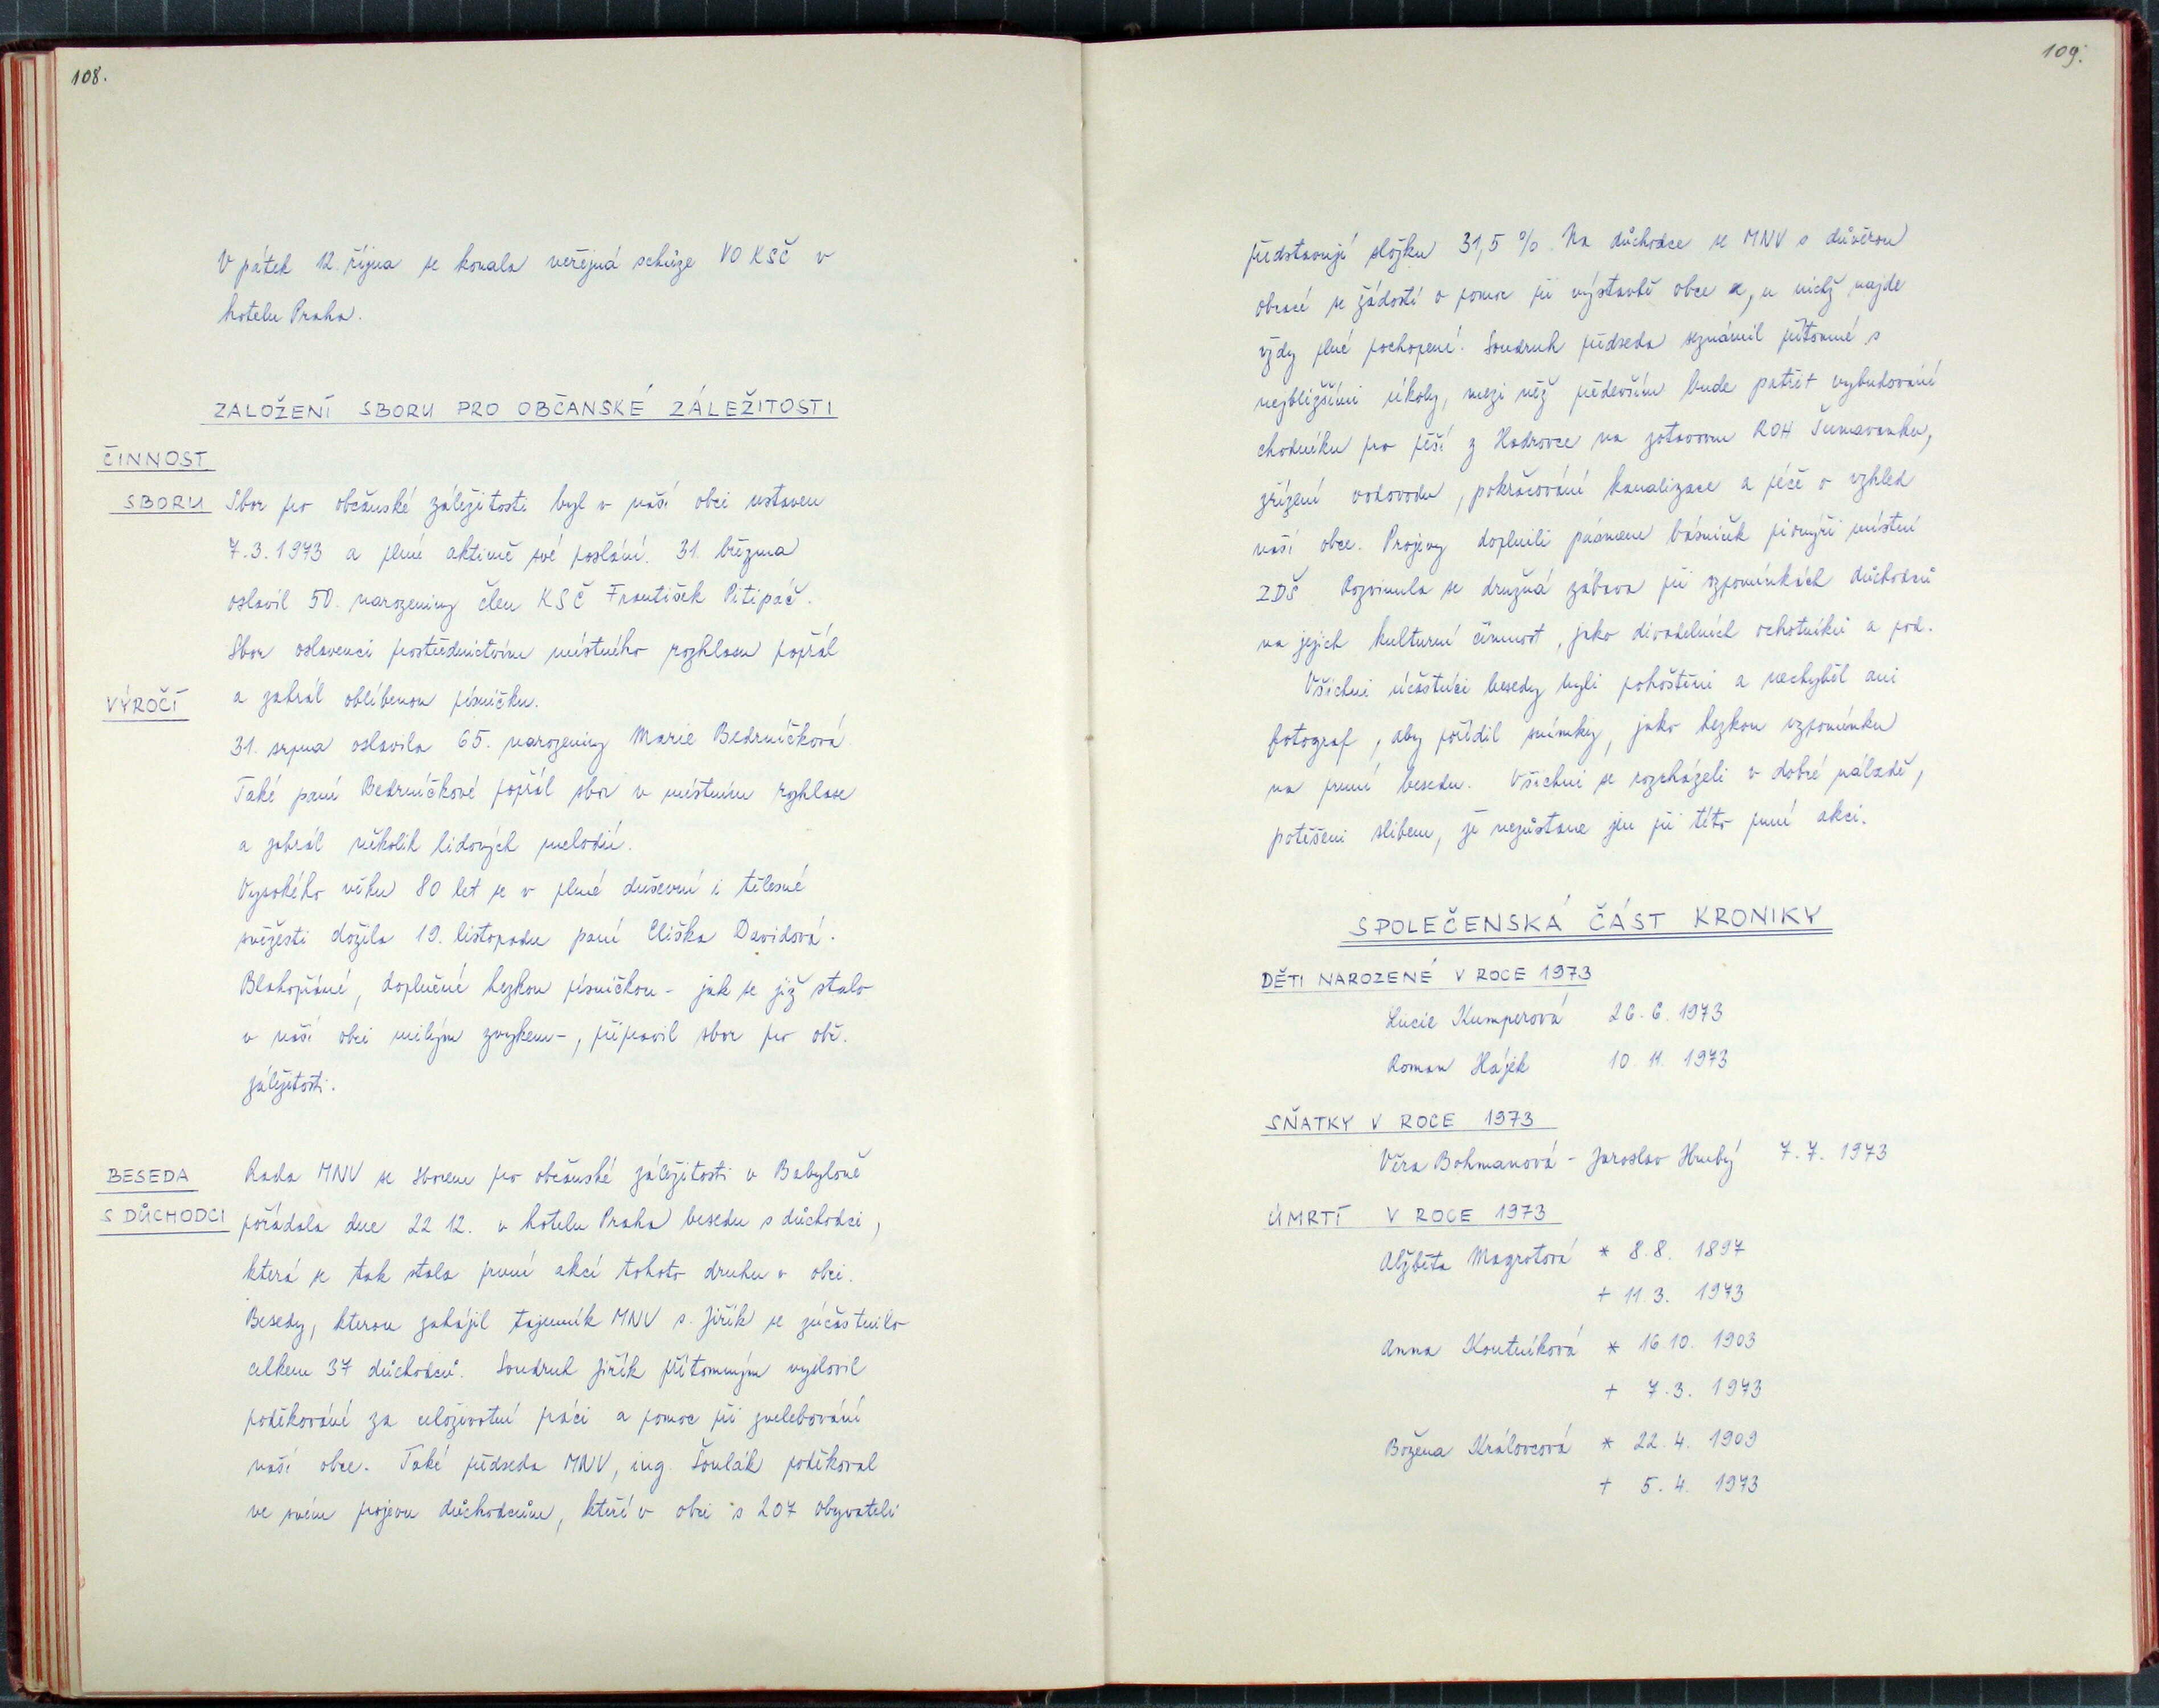 108.
V pátek 12. října se konala veřejná schůze VO KSČ v
hotelu Praha.
ZALOŽENÍ SBORU PRO OBČANSKÉ ZÁLEŽITOSTI
ČINNOST
SBORU
Sbor pro občanské záležitosti byl v naší obci ustaven
7.3.1973 a plní aktivně své poslání. 31. března
oslavil 50. narozeniny člen KSČ František Pitipáč.
Sbor oslavenci prostřednictvím místního rozhlasu popřál
VÝROČÍ
a zahrál oblíbenou písničku.
31. srpna oslavila 65. narozeniny Marie Bedrníčková
Také paní Bedrníčkové popřál sbor v místním rozhlase
a zahrál několik lidových melodií.
Vysokého věku 80 let se v plné duševní i tělesné
svěžesti dožila 19. listopadu paní Eliška Davidová.
Blahopřání, doplněné hezkou písničkou - jak se již stalo
v naší obci milým zvykem -, připravil sbor pro obč.
záležitosti.
BESEDA
S DŮCHODCI
Rada MNV se sborem pro občanské záležitosti v Babyloně
pořádala dne 22 12. v hotelu Praha besedu s důchodci,
která se tak stala první akcí tohoto druhu v obci.
Besedy, kterou zahájil tajemník MNV s. Jiřík se zúčastnilo
celkem 37 důchodců. Soudruh Jiřík přítomným vyslovil
poděkování za celoživotní práci a pomoc při zvelebování
naší obce. Také předseda MNV, ing. Šoulák poděkoval
ve svém projevu důchodcům, kteří v obci s 207 obyvateli
109.
představují složku 31,5 %. Na důchodce se MNV s důvěrou
obrací se žádostí o pomoc při výstavbě obce a, u nichž najde
vždy plné pochopení. Soudruh předseda seznámil přítomné s
nejbližšími úkoly, mezi něž především bude patřit vybudování
chodníku pro pěší z Hadrovce na zotavovnu ROH Šumavanku,
zřízení vodovodu, pokračování kanalizace a péče o vzhled
naší obce. Projevy doplnili pásmem básniček pionýři místní
ZDŠ Rozvinula se družná zábava při vzpomínkách důchodců
na jejich kulturní činnost, jako divadelních ochotníků a pod.
Všichni účastníci besedy byli pohoštěni a nechyběl ani
fotograf, aby pořídil snímky, jako hezkou vzpomínku
na první besedu. Všichni se rozcházeli v dobré náladě,
potěšeni slibem, že nezůstane jen při této první akci.
SPOLEČENSKÁ ČÁST KRONIKY
DĚTI NAROZENÉ V ROCE 1973
Lucie Kumperová 26.6.1973
Roman Hájek 10.11.1973
SŇATKY V ROCE 1973
Věra Bohmanová - Jaroslav Hrubý 7.7.1973
ÚMRTÍ V ROCE 1973
Alžběta Magrotová * 8.8. 1897
+ 11.3. 1973
Anna Koutníková * 16.10. 1903
+ 7.3. 1973
Božena Královcová * 22.4. 1909
+ 5.4. 1973